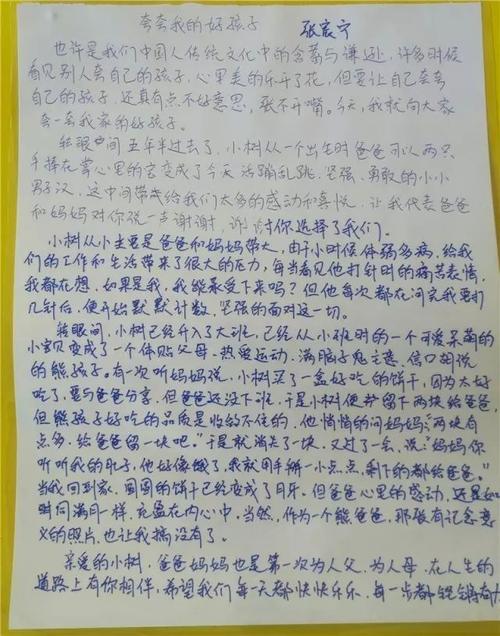 夸夸我的好孩子 张宸宁
也许是我们中国人传统文化中的含蓄与谦逊，许多时候
看见别人夸自己的孩子，心里美的乐开了花，但要让自己夸夸
自己的孩子，还真有点不好意思，张不开嘴。今天，我就向大家
夸一夸我家的好孩子。
转眼间五年半过去了，小树从一个出生时爸爸可以两只
手捧在掌心里的宝变成了今天活蹦乱跳、坚强、勇敢的小小
男子汉，这中间带给我们太多的感动和喜悦，让我代表爸爸
和妈妈对你说一声谢谢，谢谢你选择了我们。
小树从小主要是爸爸和妈妈带大，由于小时候体弱多病，给我
们的工作和生活带来了很大的压力，每当看见他打针时的痛苦表情，
我都在想，如果是我，我能承受下来吗？但他每次都在问完我要打
几针后，便开始默默计数，坚强的面对这一切。
转眼间，小树已经升入了大班，已经从小班时的一个可爱呆萌的
小宝贝变成了一个体贴父母、热爱运动、满脑子鬼主意、信口胡说
的熊孩子。有一次听妈妈说，小树买了一盒好吃的饼干，因为太好
吃了，要与爸爸分享，但爸爸还没下班，于是小树便留下两块给爸爸，
但熊孩子好吃的品质是收敛不住的，他悄悄的问妈妈："两块有
点多，给爸爸留一块吧。"于是就消失了一块，又过了一会，说："妈妈你
听听我的肚子，他好像饿了，我就用手掰一小点点，剩下的都给爸爸。"
当我回到家，圆圆的饼干已经变成了月牙。但爸爸心里的感动，还是如
时同满月一样，充盈在内心中，当然，作为一个熊爸爸，那很有纪念意
义的照片，也让我搞没有了。
亲爱的小树，爸爸妈妈也是第一次为人父、为人母，在人生的
道路上有你相伴，希望我们每一天都快快乐乐，每一步都铿锵有力